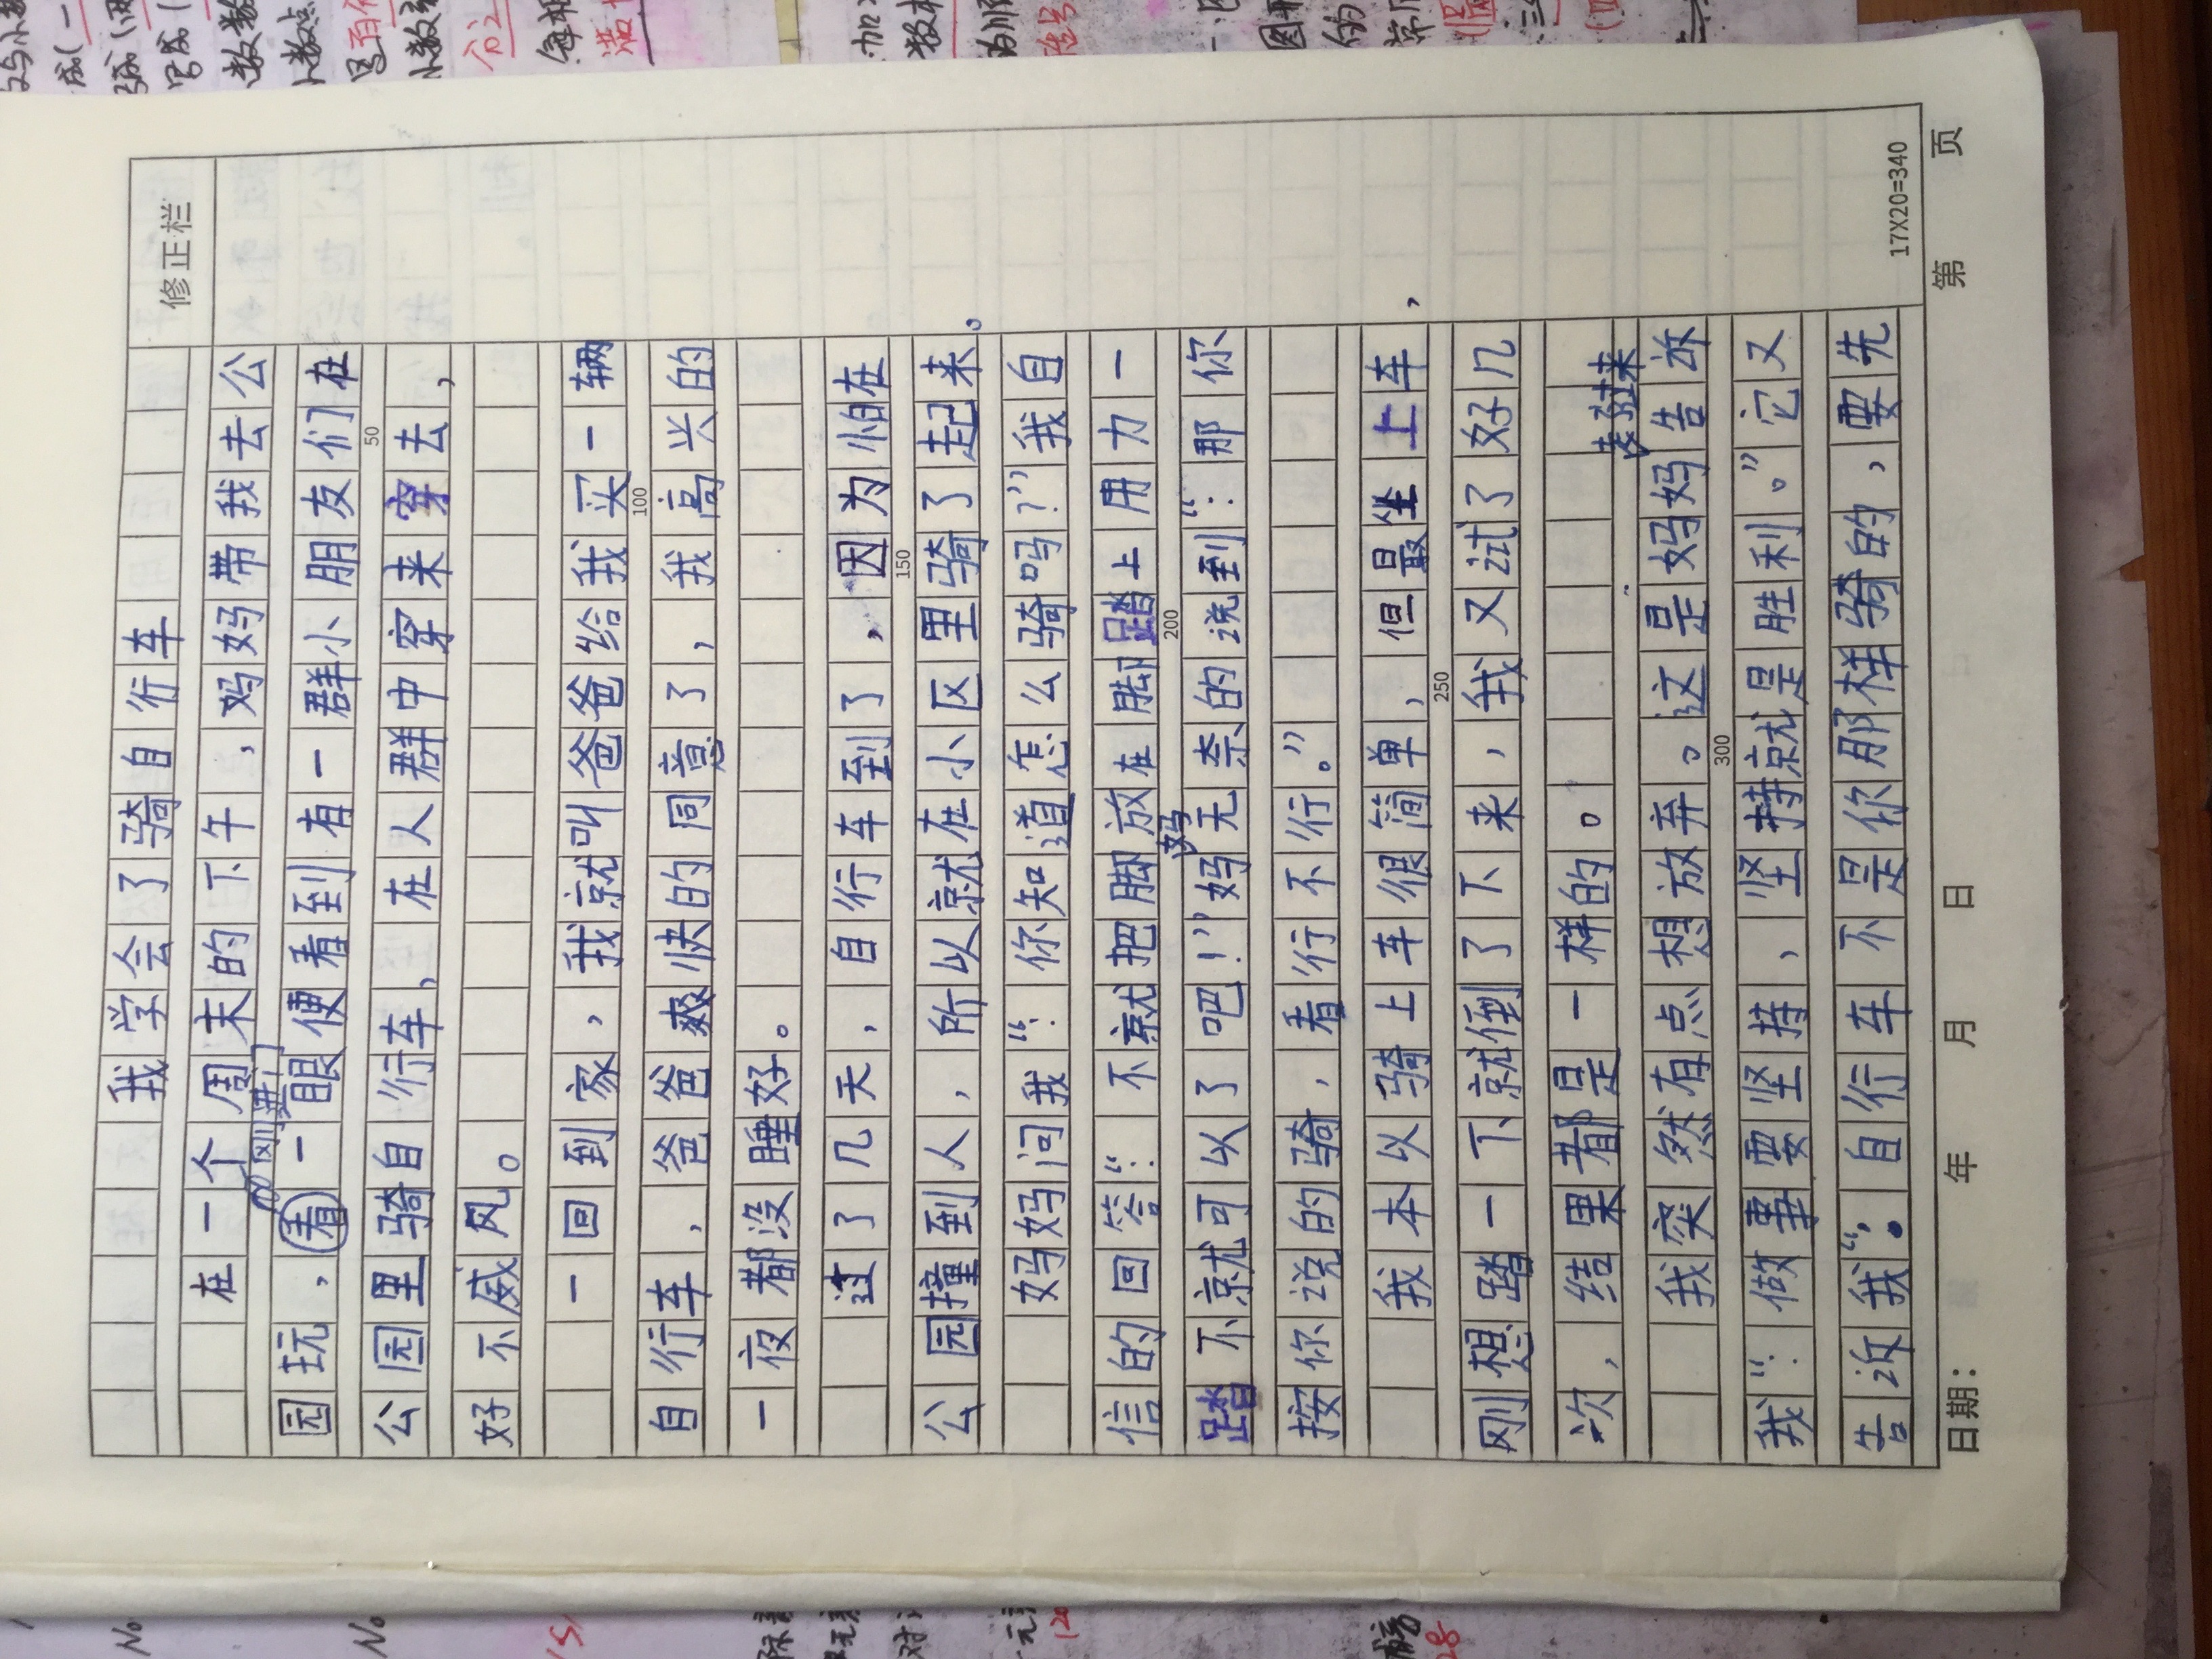 修正栏
我学会了骑自行车
在一个周末的下午，妈妈带我去公
刚进门
园玩，看一眼便看到有一群小朋友们在
50
公园里骑自行车，在人群中穿来穿去，
好不威风。
一回到家，我就叫爸爸给我买一辆
100
自行车，爸爸爽快的同意了，我高兴的
一夜都没睡好。
过了几天，自行车到了，因为怕在
150
公园撞到人，所以就在小区里骑了起来。
妈妈问我“：你知道怎么骑吗？”我自
信的回答“：不就把脚放在脚踏上用力一
200
踏不就可以了吧！”妈妈无奈的说到“：那你
按你说的骑，看行不行。”
我本以骑上车很简单，但最坐上车，
250
刚想踏一下就倒了下来，我又试了好几
次，结果都是一样的。
我突然有点想放弃。这是妈妈告诉
300
我“：做事要坚持，坚持就是胜利。”它又
告诉我“：自行车不是你那样骑的，要先
17X20=340
日期： 年 月 日 第 页